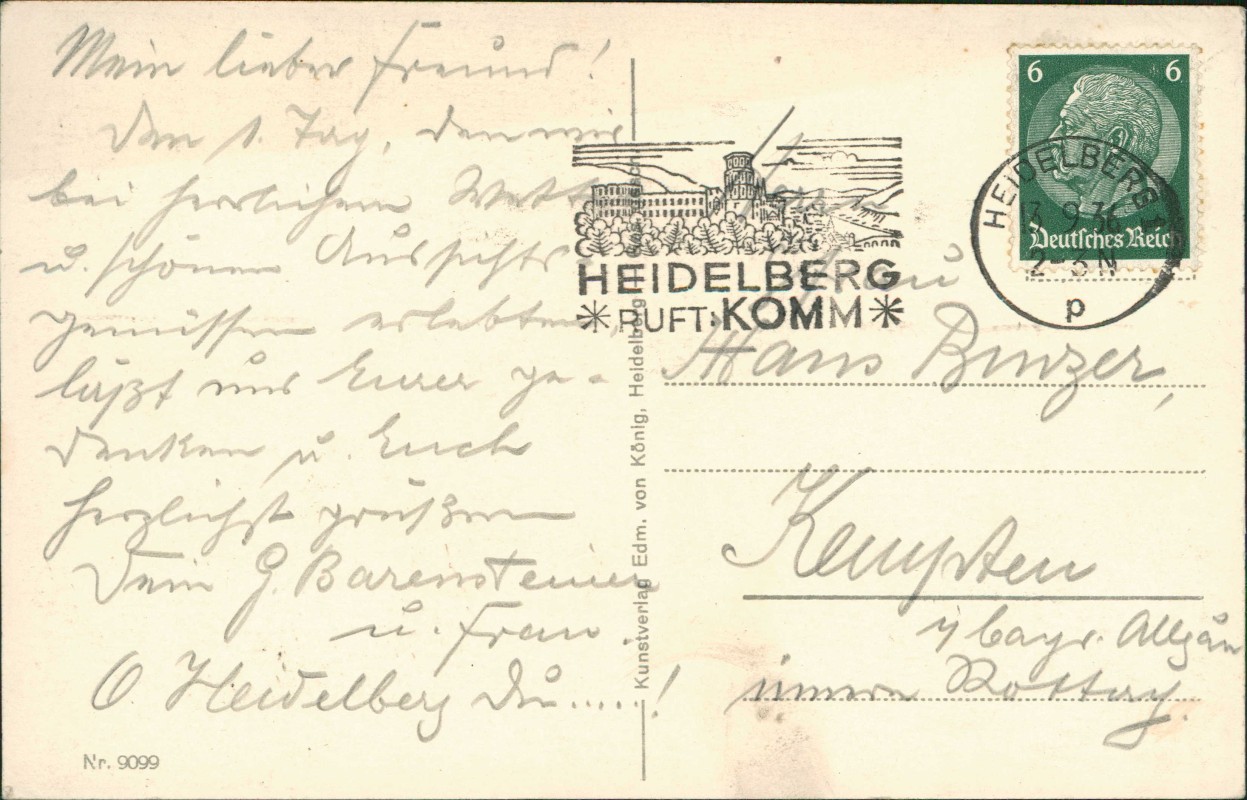 Mein lieber Freund!
Den 1. Tag, den wir
bei herrlichem
u. schönen Aussichts
genüssen erlebten
läßt uns Eurer ge-
denken u. Euch
herzlichst grüßen
Dein G. Barensteiner
u. Frau.
O Heidelberg Du.....!
Nr. 9099
Kunstverlag Edm. von König, Heidelberg
HEIDELBERG
RUFT: KOMM
6 6
Deutsches Reich
HEIDELBERG
13.9.36
2-3 N
p
Hans Binzer,
Kempten
i/ bayr. Allgäu
innere Rottag.